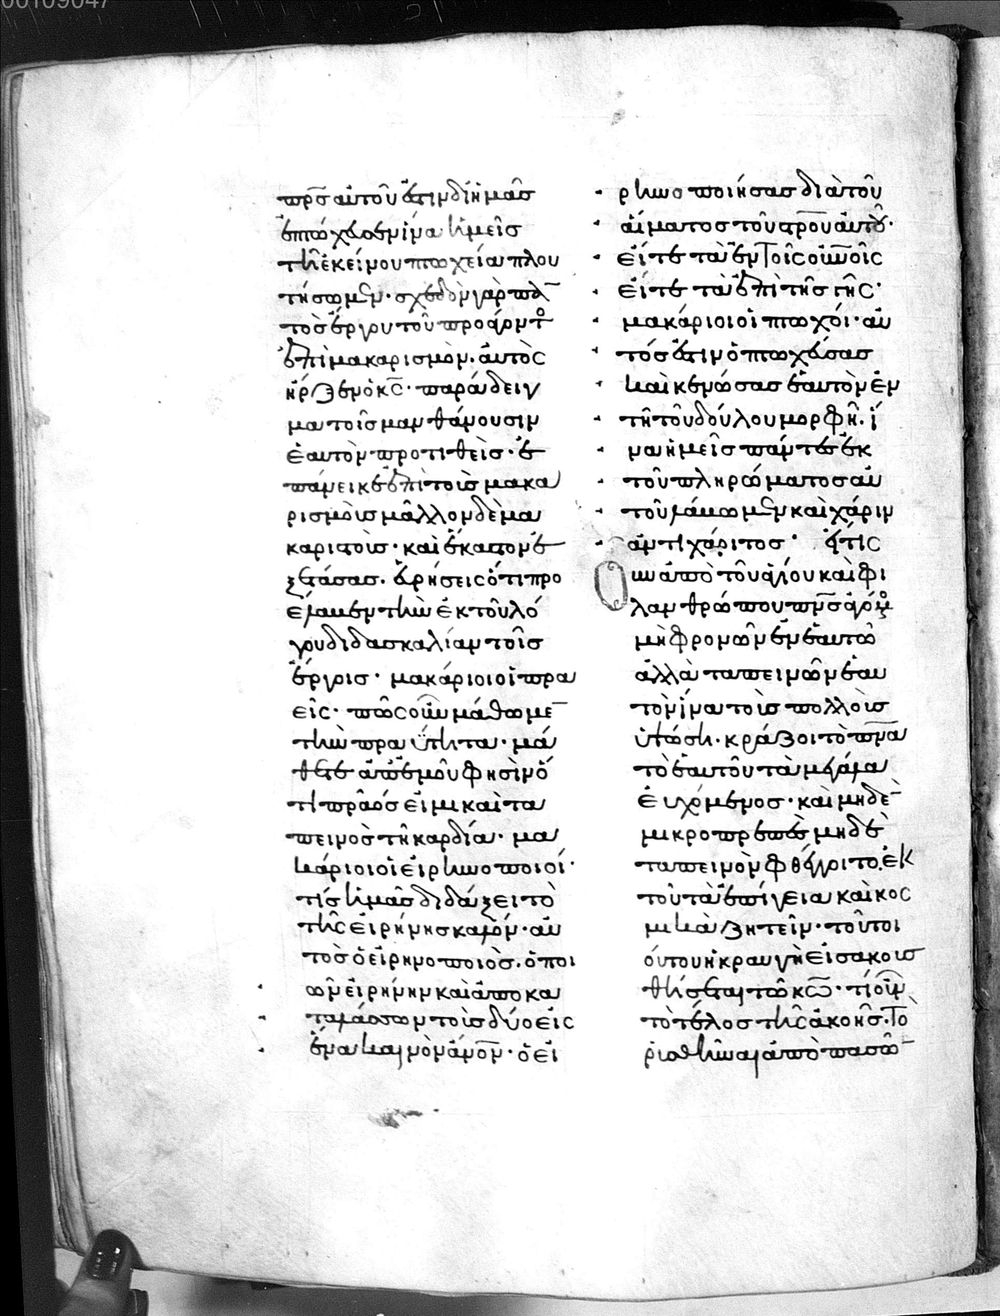 πρ̅ς αὐτοῦ ἐστὶν δι' ἡμᾶς
ἐπτώχευσεν ἵνα ἡμεῖς
τῆ ἐκείνου πτωχεία πλου
τήσωμεν· σχεδὸν γὰρ πα̅
τὸς ἔργου τοῦ πρὸς
ἐπὶ μακαρισμὸν· αὐτὸς
ἤρξεν ὁ κ̅ς· παράδειγ
μα τοῖς μανθάνουσιν
ἑαυτὸν προτιθεὶς· ἐ
πάνεικε ἐπὶ τοὺς μακα
ρισμοὺς μᾶλλον δὲ μα
καριστοὺς· καὶ ἕκαστον ἐ
ξετάσας· εὑρήσεις ὅτι προ
έλαμεν τὴν ἐκ τοῦ λό
γου διδασκαλίαν τοῖς
ἔργοις· μακάριοι οἱ πρα
εῖς· πῶς οὖν μάθωμε̅
τὴν πραϋτητα· μά
θετε ἀπ' ἐμοῦ φησὶν ὅ
τι πρᾶός εἰμι καὶ τα
πεινὸς τῆ καρδία· μα
κάριοι οἱ εἰρηνοποιοί·
τίς ἡμᾶς διδάξει τὸ
τῆς εἰρήνης καλόν· αὐ
τὸς ὁ εἰρηνοποιὸς· ὁ ποι
ῶν εἰρήνην καὶ ἀποκα
ταλάσσων τοὺς δύο εἰς
ἕνα καινὸν α̅νο̅ν· ὁ εἰ
ρηνοποιήσας διὰ τοῦ
αἵματος τοῦ σ̅ρου αὐτοῦ·
εἴτε τὰ ἐν τοῖς οὐ̅νοῖς
εἴτε τὰ ἐπὶ τῆς γῆς·
μακάριοι οἱ πτωχοί· αὐ
τός ἐστιν ὁ πτωχεύσας
καὶ κενώσας ἑαυτὸν ἐν
τῆ τοῦ δούλου μορφῆ· ἵ
να ἡμεῖς πάντες ἐκ
τοῦ πληρώματος αὐ
τοῦ λάβωμεν καὶ χάριν
ἀντὶ χάριτος· ἔστις
Οὖν ἀπὸ τοῦ ἁγίου καὶ φι
λανθρώπου πν̅ς
μὴ φρονῶν ἐν ἑαυτῶ
ἀλλὰ ταπεινῶν ἑαυ
τὸν ἵνα τοὺς πολλοὺς
ὑψώση· κράζοι τὸ πν̅α
τὸ ἑαυτοῦ τὰ μεγάλα
εὐχόμενος· καὶ μηδὲ̅
μικροπρεπὲς μηδὲ
ταπεινὸν φθέγγοιτο· ἐκ
τοῦ τὰ ἐπίγεια καὶ κοσ
μικὰ ζητεῖν· τοῦ τοι
ούτου ἡ κραυγὴ εἰσακουσ
θήσεται τῶ κ̅ω· τί οὖν
τὸ τέλος τῆς ἀκοῆς· τὸ
ῥυσθῆναι ἀπὸ πασῶ̅